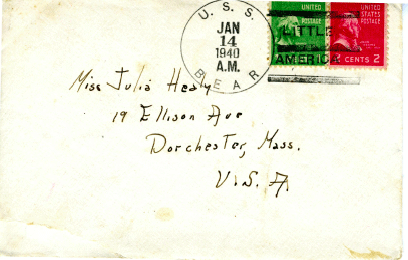 U. S. S.
JAN
14
1940
A.M.
BEAR
LITTLE
AMERICA
UNITED
STATES
POSTAGE
UNITED
STATES
POSTAGE
2 CENTS 2
Miss Julia Healy
19 Ellison Ave
Dorchester, Mass.
U.S.A.